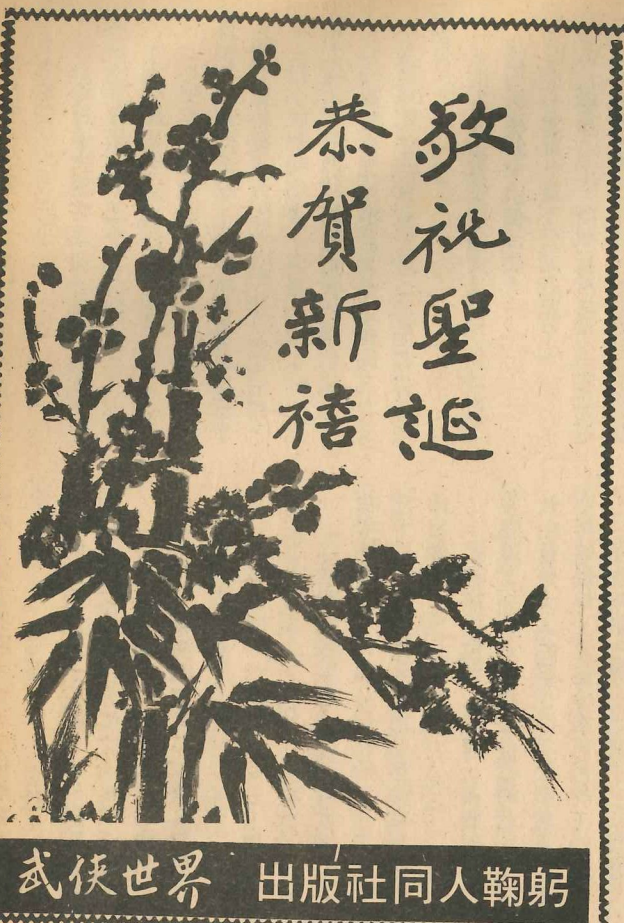 敬祝聖誕
恭賀新禧
武俠世界 出版社同人鞠躬